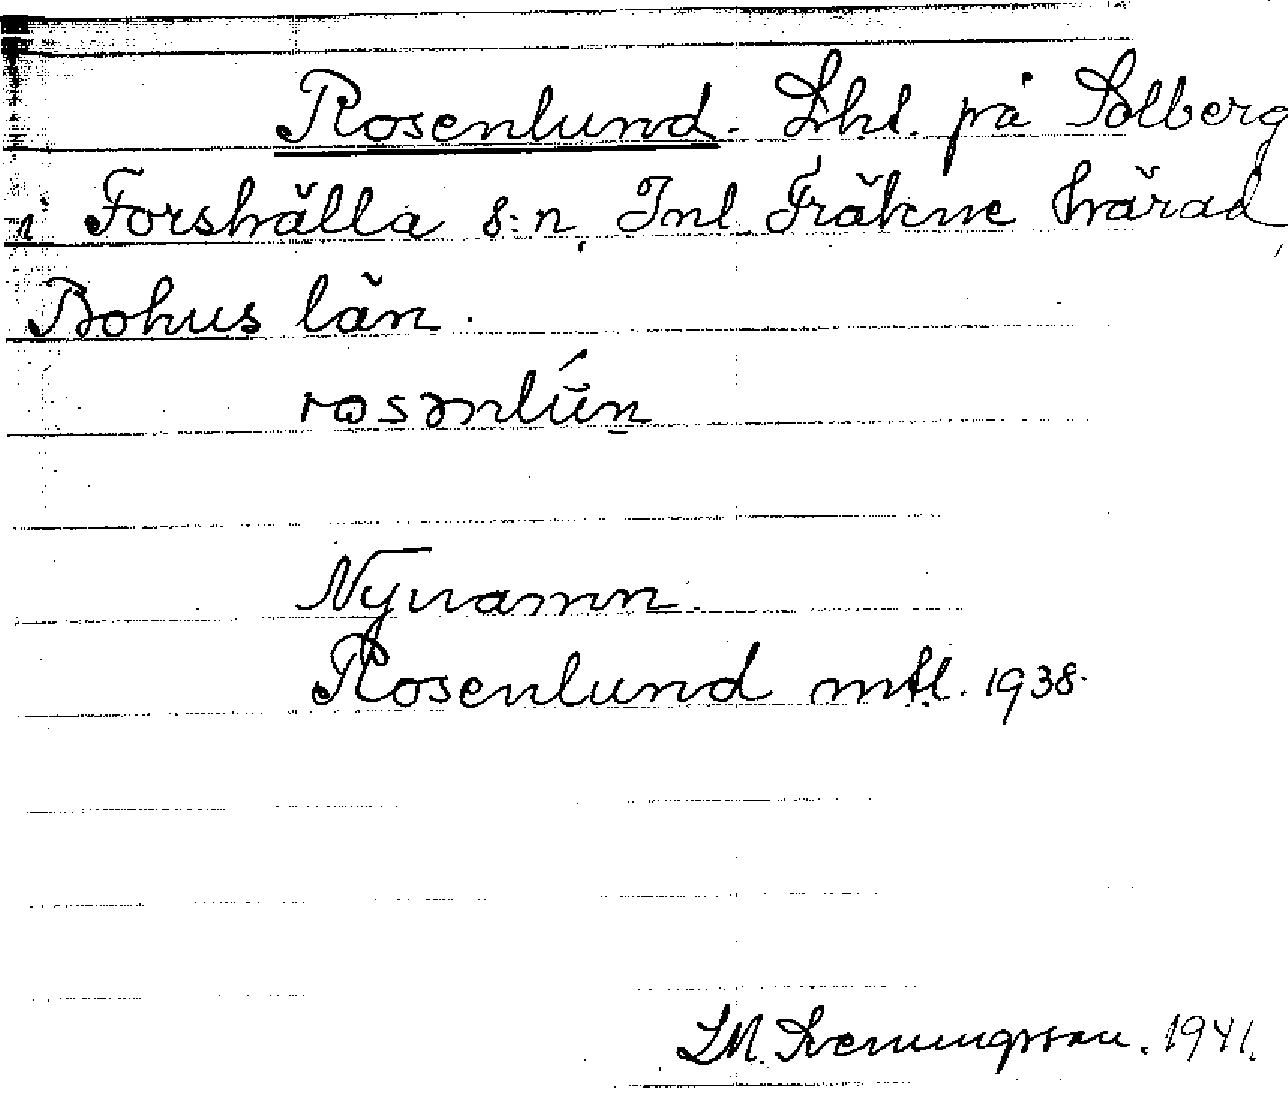 Rosenlund. Lht. på Solberg
i Forshälla s:n, Inl. Fräkne härad,
Bohus län.
rosənlún
Nynamn
Rosenlund mtl. 1938.
1941.